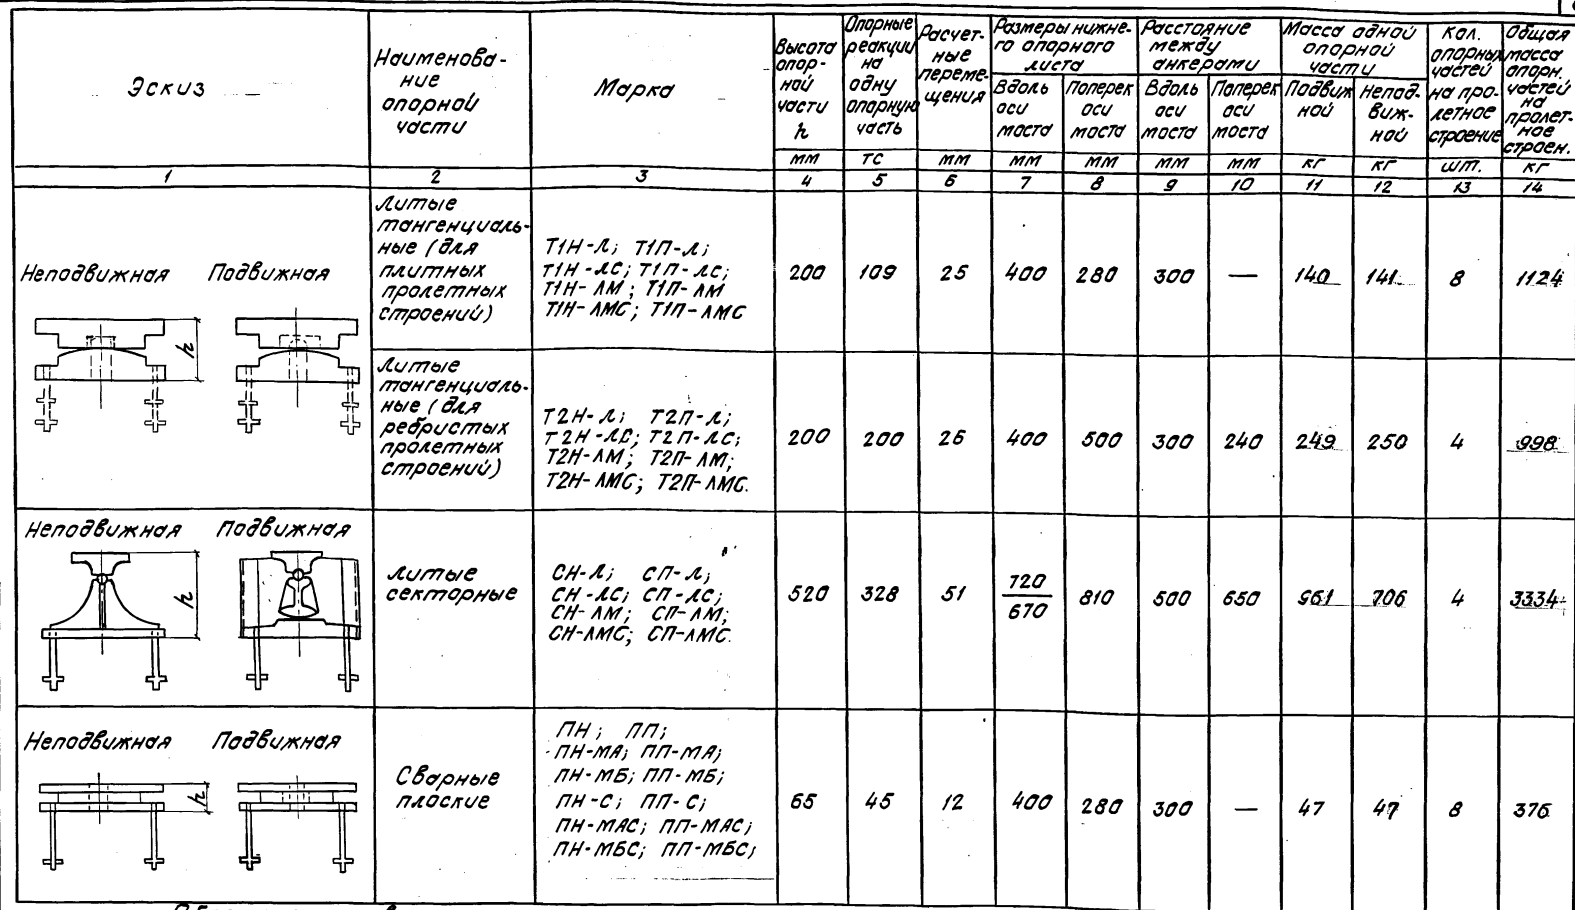 Эскиз
Наименова-
ние
опорной
части
Марка
Высота
опор-
ной
части
h
Опорные
реакции
на
одну
опорную
часть
Расчет-
ные
переме-
щения
Размеры нижне-
го опорного
листа
Вдоль
оси
моста
Поперек
оси
моста
Расстояние
между
анкерами
Вдоль
оси
моста
Поперек
оси
моста
Масса одной
опорной
части
Подвиж
ной
Непод-
виж-
ной
Кол.
опорных
частей
на про-
летное
строение
Общая
масса
опорн.
частей
на
пролет-
ное
строен.
мм тс мм мм мм мм мм кг кг шт. кг
1 2 3 4 5 6 7 8 9 10 11 12 13 14
Неподвижная Подвижная
h
Литые
тангенциаль-
ные (для
плитных
пролетных
строений)
Т1Н-Л; Т1П-Л;
Т1Н-ЛС; Т1П-ЛС;
Т1Н-ЛМ; Т1П-ЛМ
Т1Н-ЛМС; Т1П-ЛМС
200 109 25 400 280 300 — 140 141 8 1124
Литые
тангенциаль-
ные (для
ребристых
пролетных
строений)
Т2Н-Л; Т2П-Л;
Т2Н-ЛС; Т2П-ЛС;
Т2Н-ЛМ; Т2П-ЛМ;
Т2Н-ЛМС; Т2П-ЛМС.
200 200 25 400 500 300 240 249 250 4 998
Неподвижная Подвижная
h
Литые
секторные
СН-Л; СП-Л;
СН-ЛС; СП-ЛС;
СН-ЛМ; СП-ЛМ;
СН-ЛМС; СП-ЛМС.
520 328 51 720/670 810 500 650 961 706 4 3334
Неподвижная Подвижная
h
Сварные
плоские
ПН; ПП;
ПН-МА; ПП-МА;
ПН-МБ; ПП-МБ;
ПН-С; ПП-С;
ПН-МАС; ПП-МАС;
ПН-МБС; ПП-МБС;
65 45 12 400 280 300 — 47 47 8 376